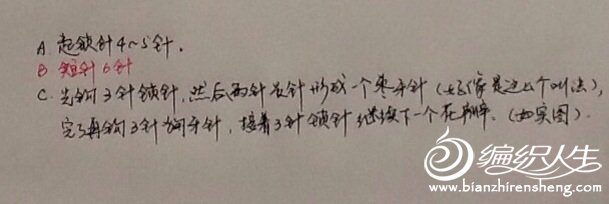 A 起锁针4~5针.
B 短针6针
C. 先钩3针锁针,然后两针长针形成一个枣子针(好像是这么个叫法),
完了再钩3针狗牙针,接着3针锁针继续下一个花瓣.(如实图).
编织人生
www.bianzhirensheng.com